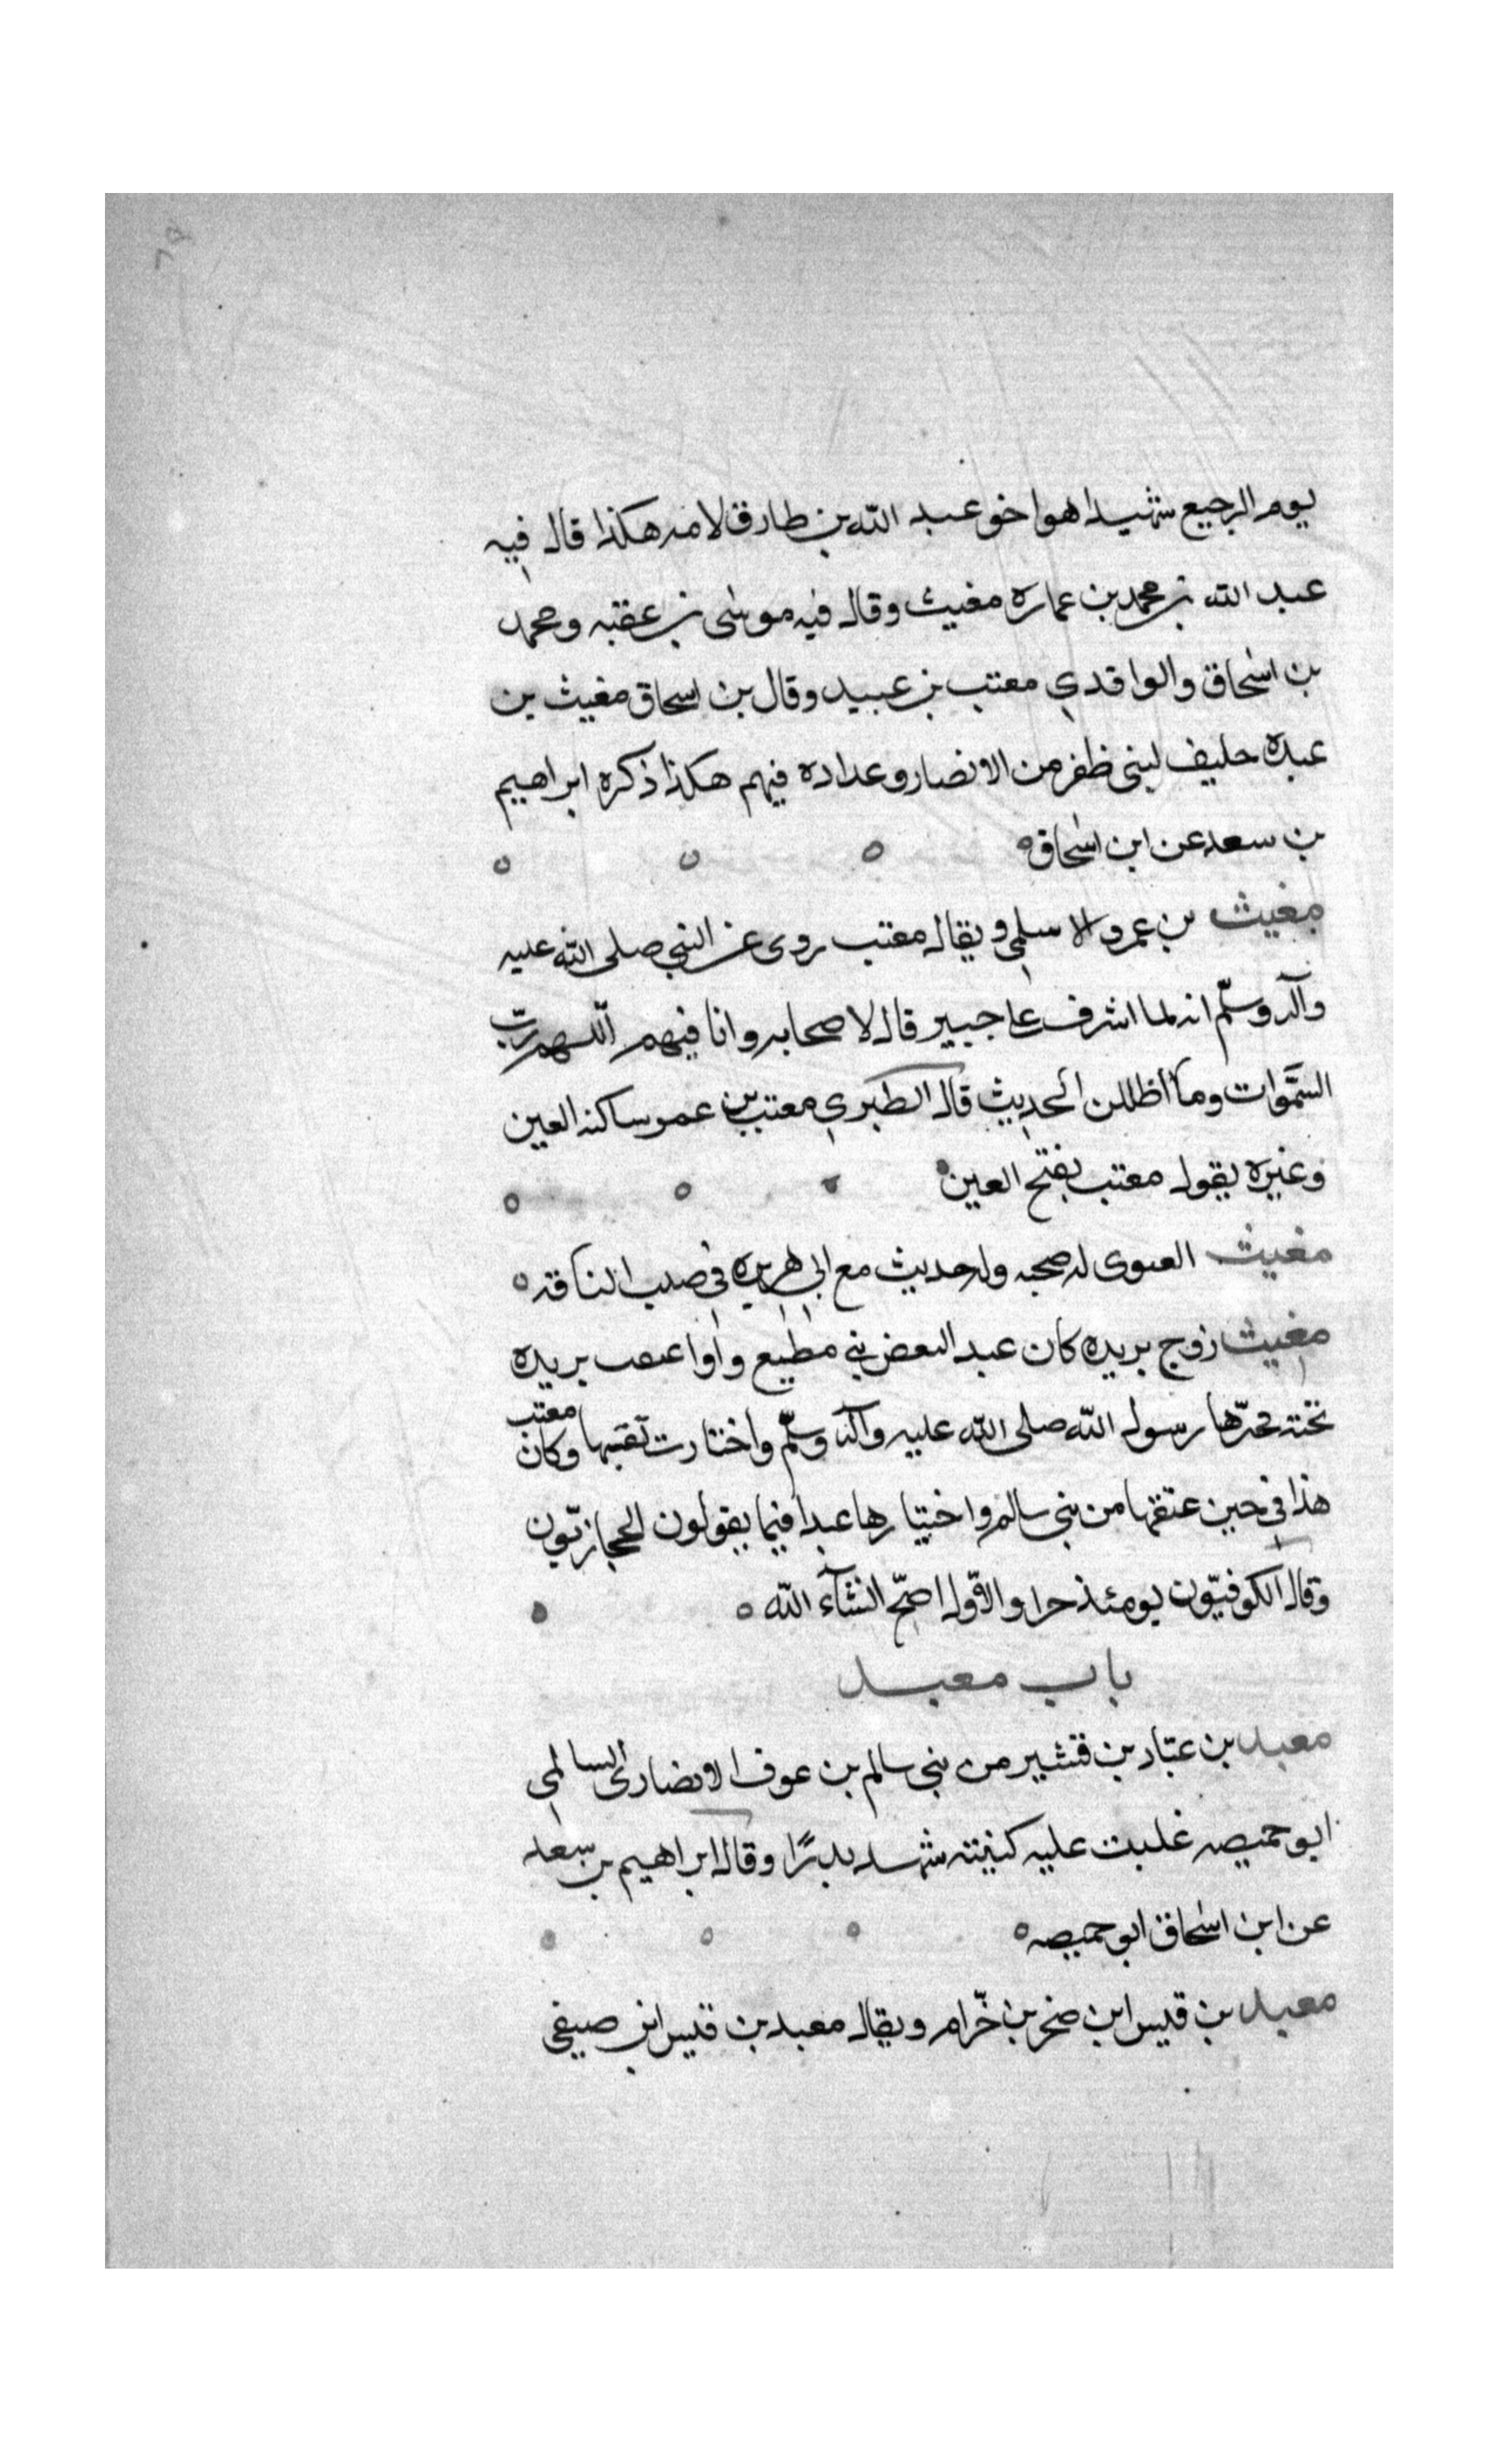 يوم الرجيع شهيدا هو اخو عبد الله بن طارق لامه هكذا قال فيه
عبد الله بن محمد بن عماره مغيث وقال فيه موسى بن عقبه ومحمد
بن اسحاق والواقدي معتب بن عبيد وقال بن اسحاق مغيث بن
عبده حليف لبنى ظفر من الانصار وعداده فيهم هكذا ذكره ابراهيم
بن سعد عن ابن اسحاق
مغيث بن عمرو الاسلمي ويقال معتب روى عن النبي صلى الله عليه
وآله وسلّم انه لما اشرف على خيبر قال لاصحابه وانا فيهم اللهم ربّ
السّموات وما اظللن الحديث قال الطبري معتب بن عمر ساكنه العين
وغيره يقول معتب بفتح العين
مغيث الغنوى له صحبه وله حديث مع ابي هريره في حلب الناقه
مغيث زوج بريره كان عبد البعض بني مطيع بريره
تحته رسول الله صلى الله عليه وآله وسلّم واختارت نفسها وكان معتب
هذا في حين عتقها من بني سالم واختيارها عبدا فيما يقولون الحجازيّون
وقال الكوفيّون يومئذ حرا والاوّل اصحّ انشآء الله
باب معبد
معبد بن عبّاد بن قشير من بني سالم بن عوف الانصارى السالمي
ابو حميصه غلبت عليه كنيته شهد بدرًا وقال ابراهيم بن سعد
عن ابن اسحاق ابو حميصه
معبد بن قيس ابن صخر بن حرام ويقال معبد بن قيس ابن صيفي